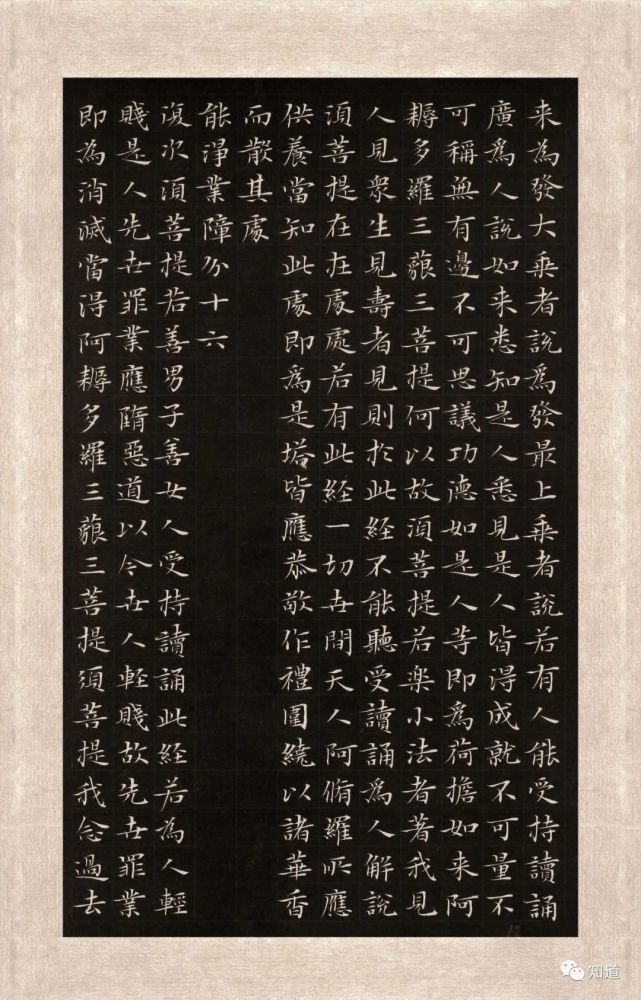 来為發大乘者說為發最上乘者說若有人能受持讀誦
廣爲人說如来悉知是人悉見是人皆淂成就不可量不
可稱無有邊不可思議功德如是人等即爲荷擔如来阿
耨多羅三藐三菩提何以故湏菩提若樂小法者著我見
人見衆生見壽者見則扵此經不能聽受讀誦爲人解說
湏菩提在在處處若有此經一切世間天人阿脩羅所應
供養當知此處即爲是塔皆應恭敬作禮圍繞以諸華香
而散其處
能淨業障分十六
復次湏菩提若善男子善女人受持讀誦此經若為人輕
賤是人先世罪業應墮惡道以今世人輕賤故先世罪業
即為消滅當淂阿耨多羅三藐三菩提須菩提我念過去
知道